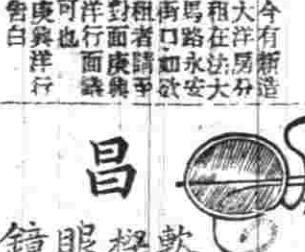 今有新造
大洋房分
租在法大
馬路永安
街口如欲
租者請至
對面庚興
洋行面議
可也
庚興洋行
告白
昌
鏡眼極軟